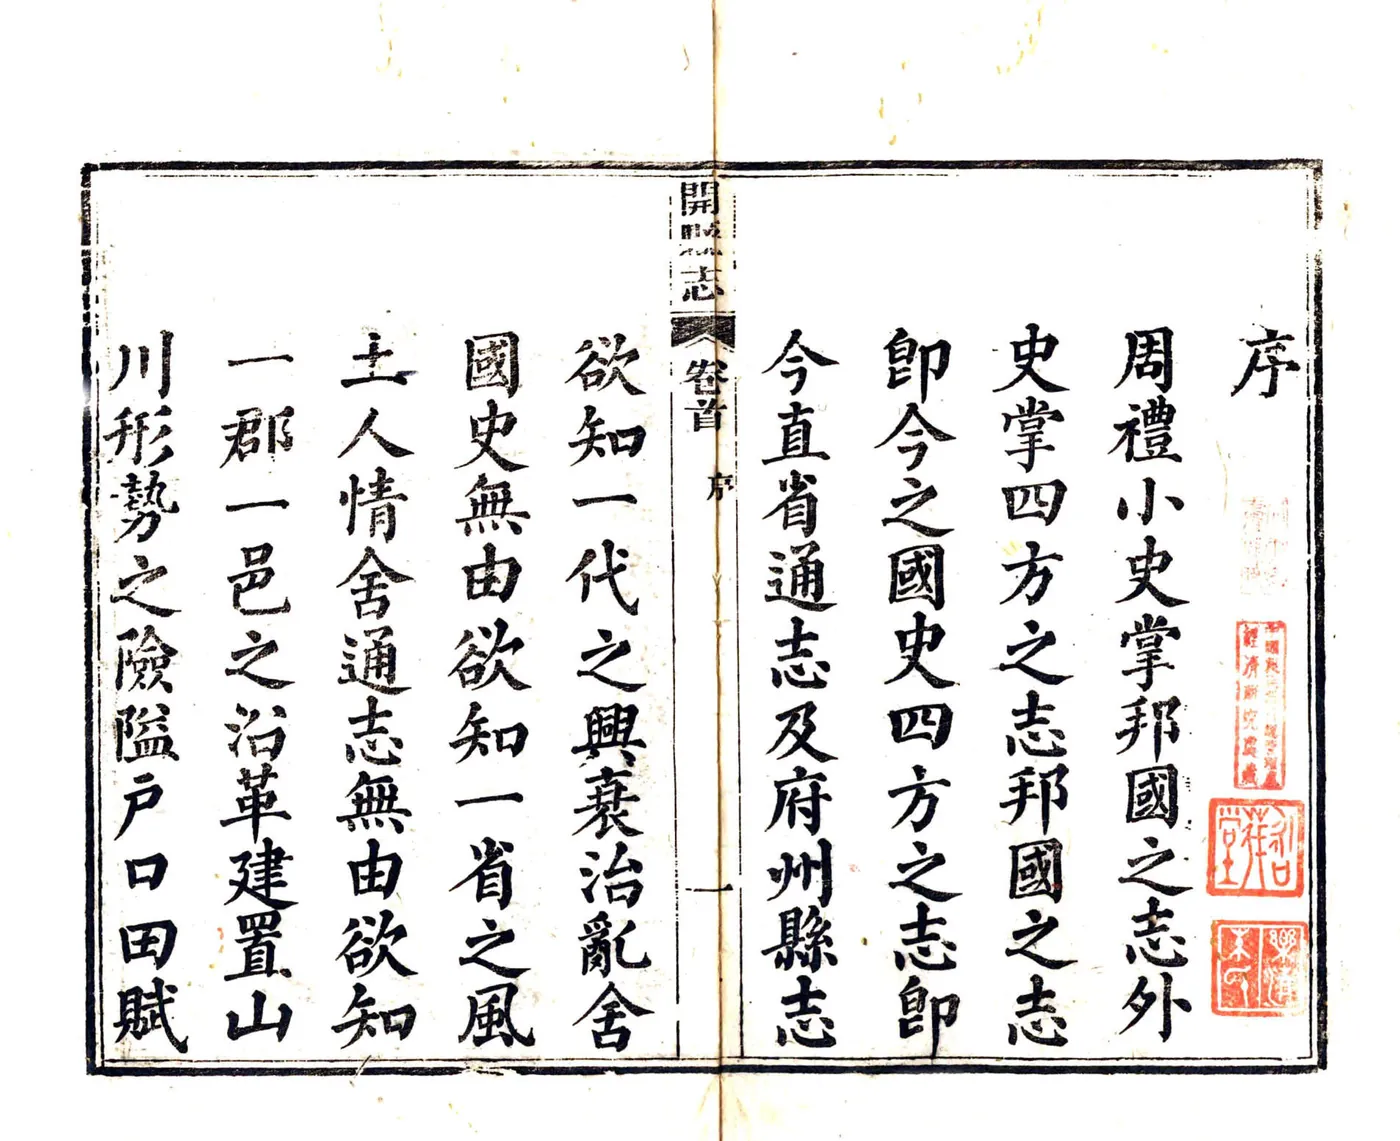 序
周禮小史掌邦國之志外
史掌四方之志邦國之志
卽今之國史四方之志卽
今直省通志及府州縣志
開縣志
卷首
序
一
欲知一代之興衰治亂舍
國史無由欲知一省之風
土人情舍通志無由欲知
一郡一邑之沿革建置山
川形勢之險隘戶口田賦